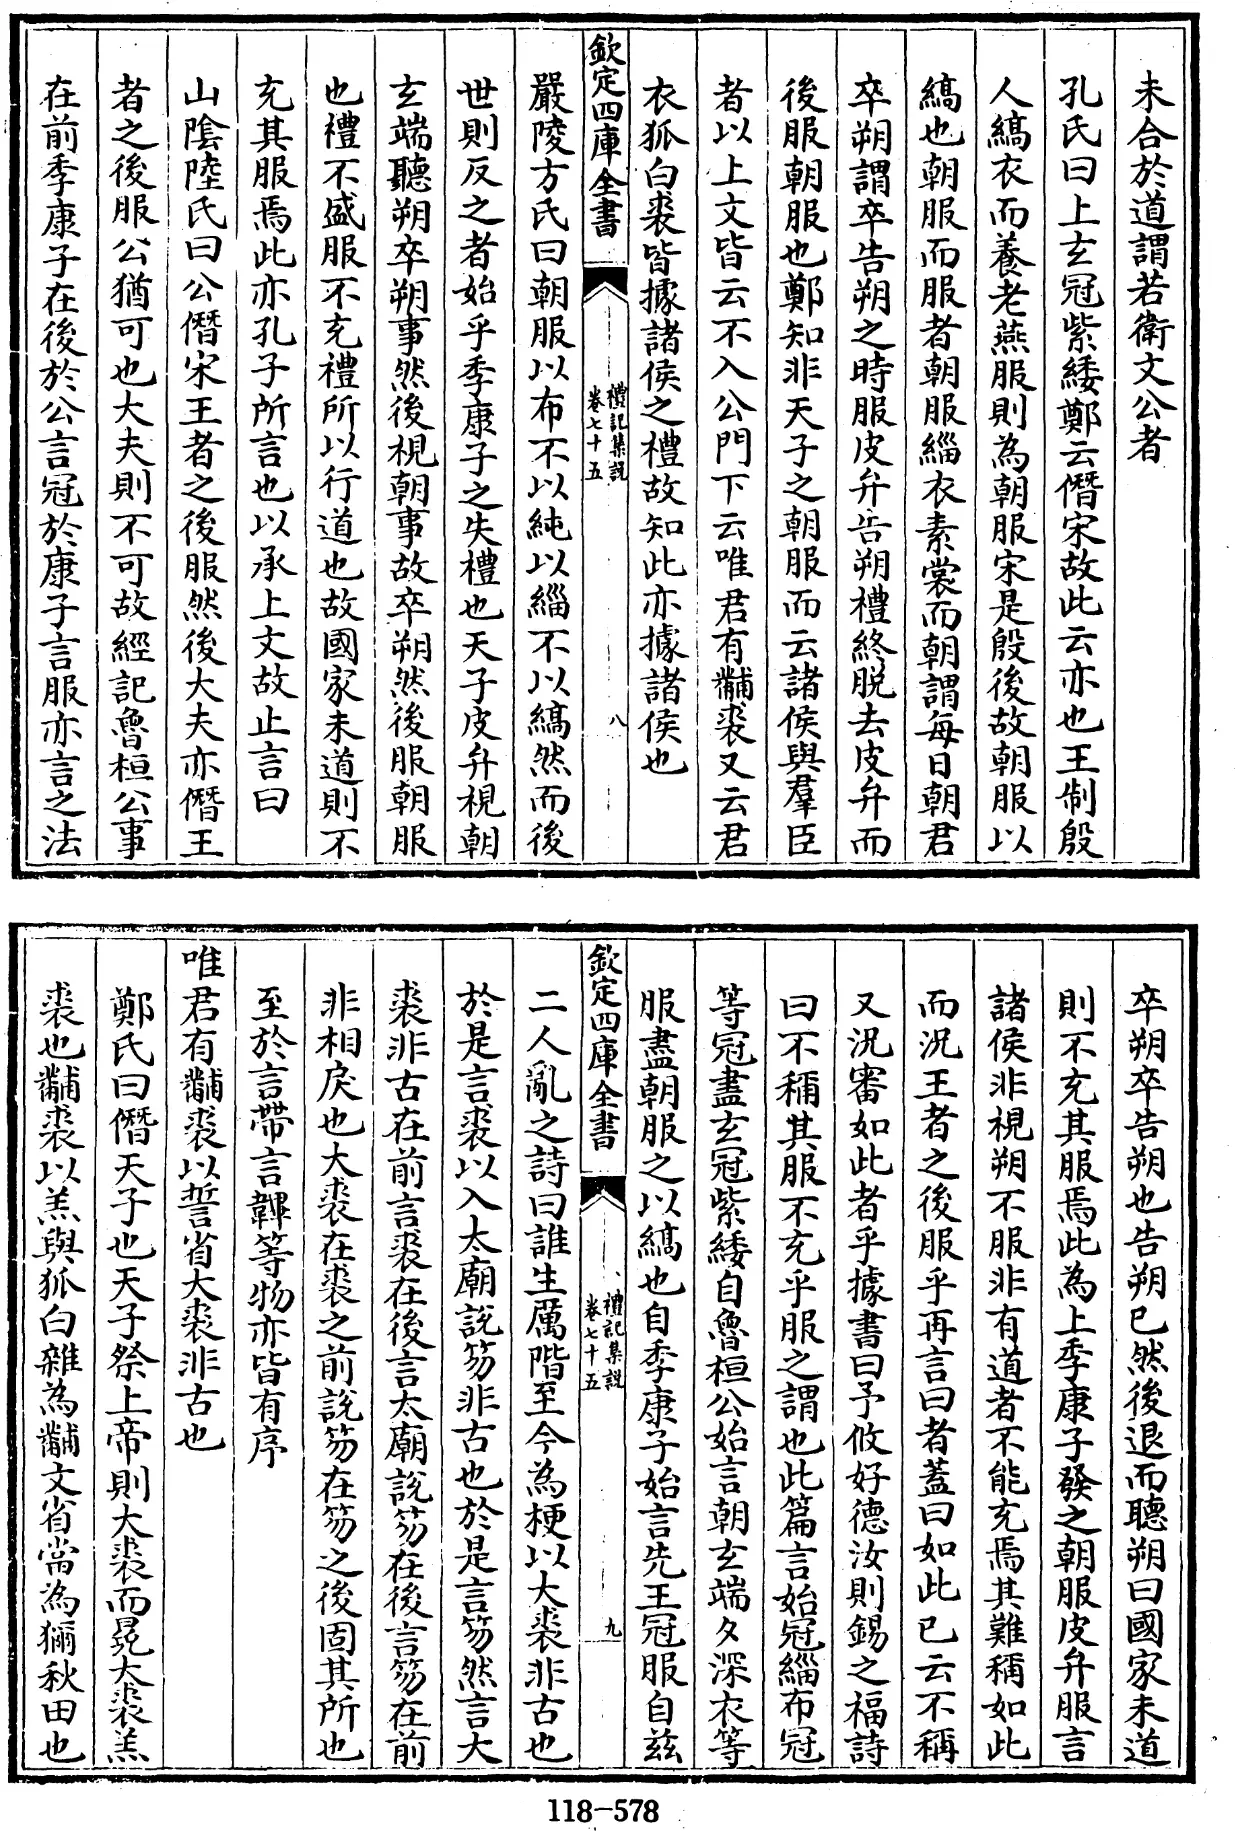 未合於道謂若衛文公者
孔氏曰上玄冠紫緌鄭云僭宋故此云亦也王制殷
人縞衣而養老燕服則為朝服宋是殷後故朝服以
縞也朝服而服者朝服緇衣素裳而朝謂每日朝君
卒朔謂卒告朔之時服皮弁告朔禮終脱去皮弁而
後服朝服也鄭知非天子之朝服而云諸侯與羣臣
者以上文皆云不入公門下云唯君有黼裘又云君
衣狐白裘皆據諸侯之禮故知此亦據諸侯也
欽定四庫全書
禮記集說
卷七十五
八
嚴陵方氏曰朝服以布不以純以緇不以縞然而後
世則反之者始乎季康子之失禮也天子皮弁視朝
玄端聽朔卒朔事然後視朝事故卒朔然後服朝服
也禮不盛服不充禮所以行道也故國家未道則不
充其服焉此亦孔子所言也以承上文故止言曰
山陰陸氏曰公僭宋王者之後服然後大夫亦僭王
者之後服公猶可也大夫則不可故經記魯桓公事
在前季康子在後於公言冠於康子言服亦言之法
卒朔卒告朔也告朔已然後退而聽朔曰國家未道
則不充其服焉此為上季康子發之朝服皮弁服言
諸侯非視朔不服非有道者不能充焉其難稱如此
而況王者之後服乎再言曰者蓋曰如此已云不稱
又況審如此者乎據書曰予攸好德汝則錫之福詩
曰不稱其服不充乎服之謂也此篇言始冠緇布冠
等冠盡玄冠紫緌自魯桓公始言朝玄端夕深衣等
服盡朝服之以縞也自季康子始言先王冠服自茲
欽定四庫全書
禮記集說
卷七十五
九
二人亂之詩曰誰生厲階至今為梗以大裘非古也
於是言裘以入太廟說笏非古也於是言笏然言大
裘非古在前言裘在後言太廟說笏在後言笏在前
非相戾也大裘在裘之前說笏在笏之後固其所也
至於言帶言韠等物亦皆有序
唯君有黼裘以誓省大裘非古也
鄭氏曰僭天子也天子祭上帝則大裘而冕大裘羔
裘也黼裘以羔與狐白雜為黼文省當為獮秋田也
118-578